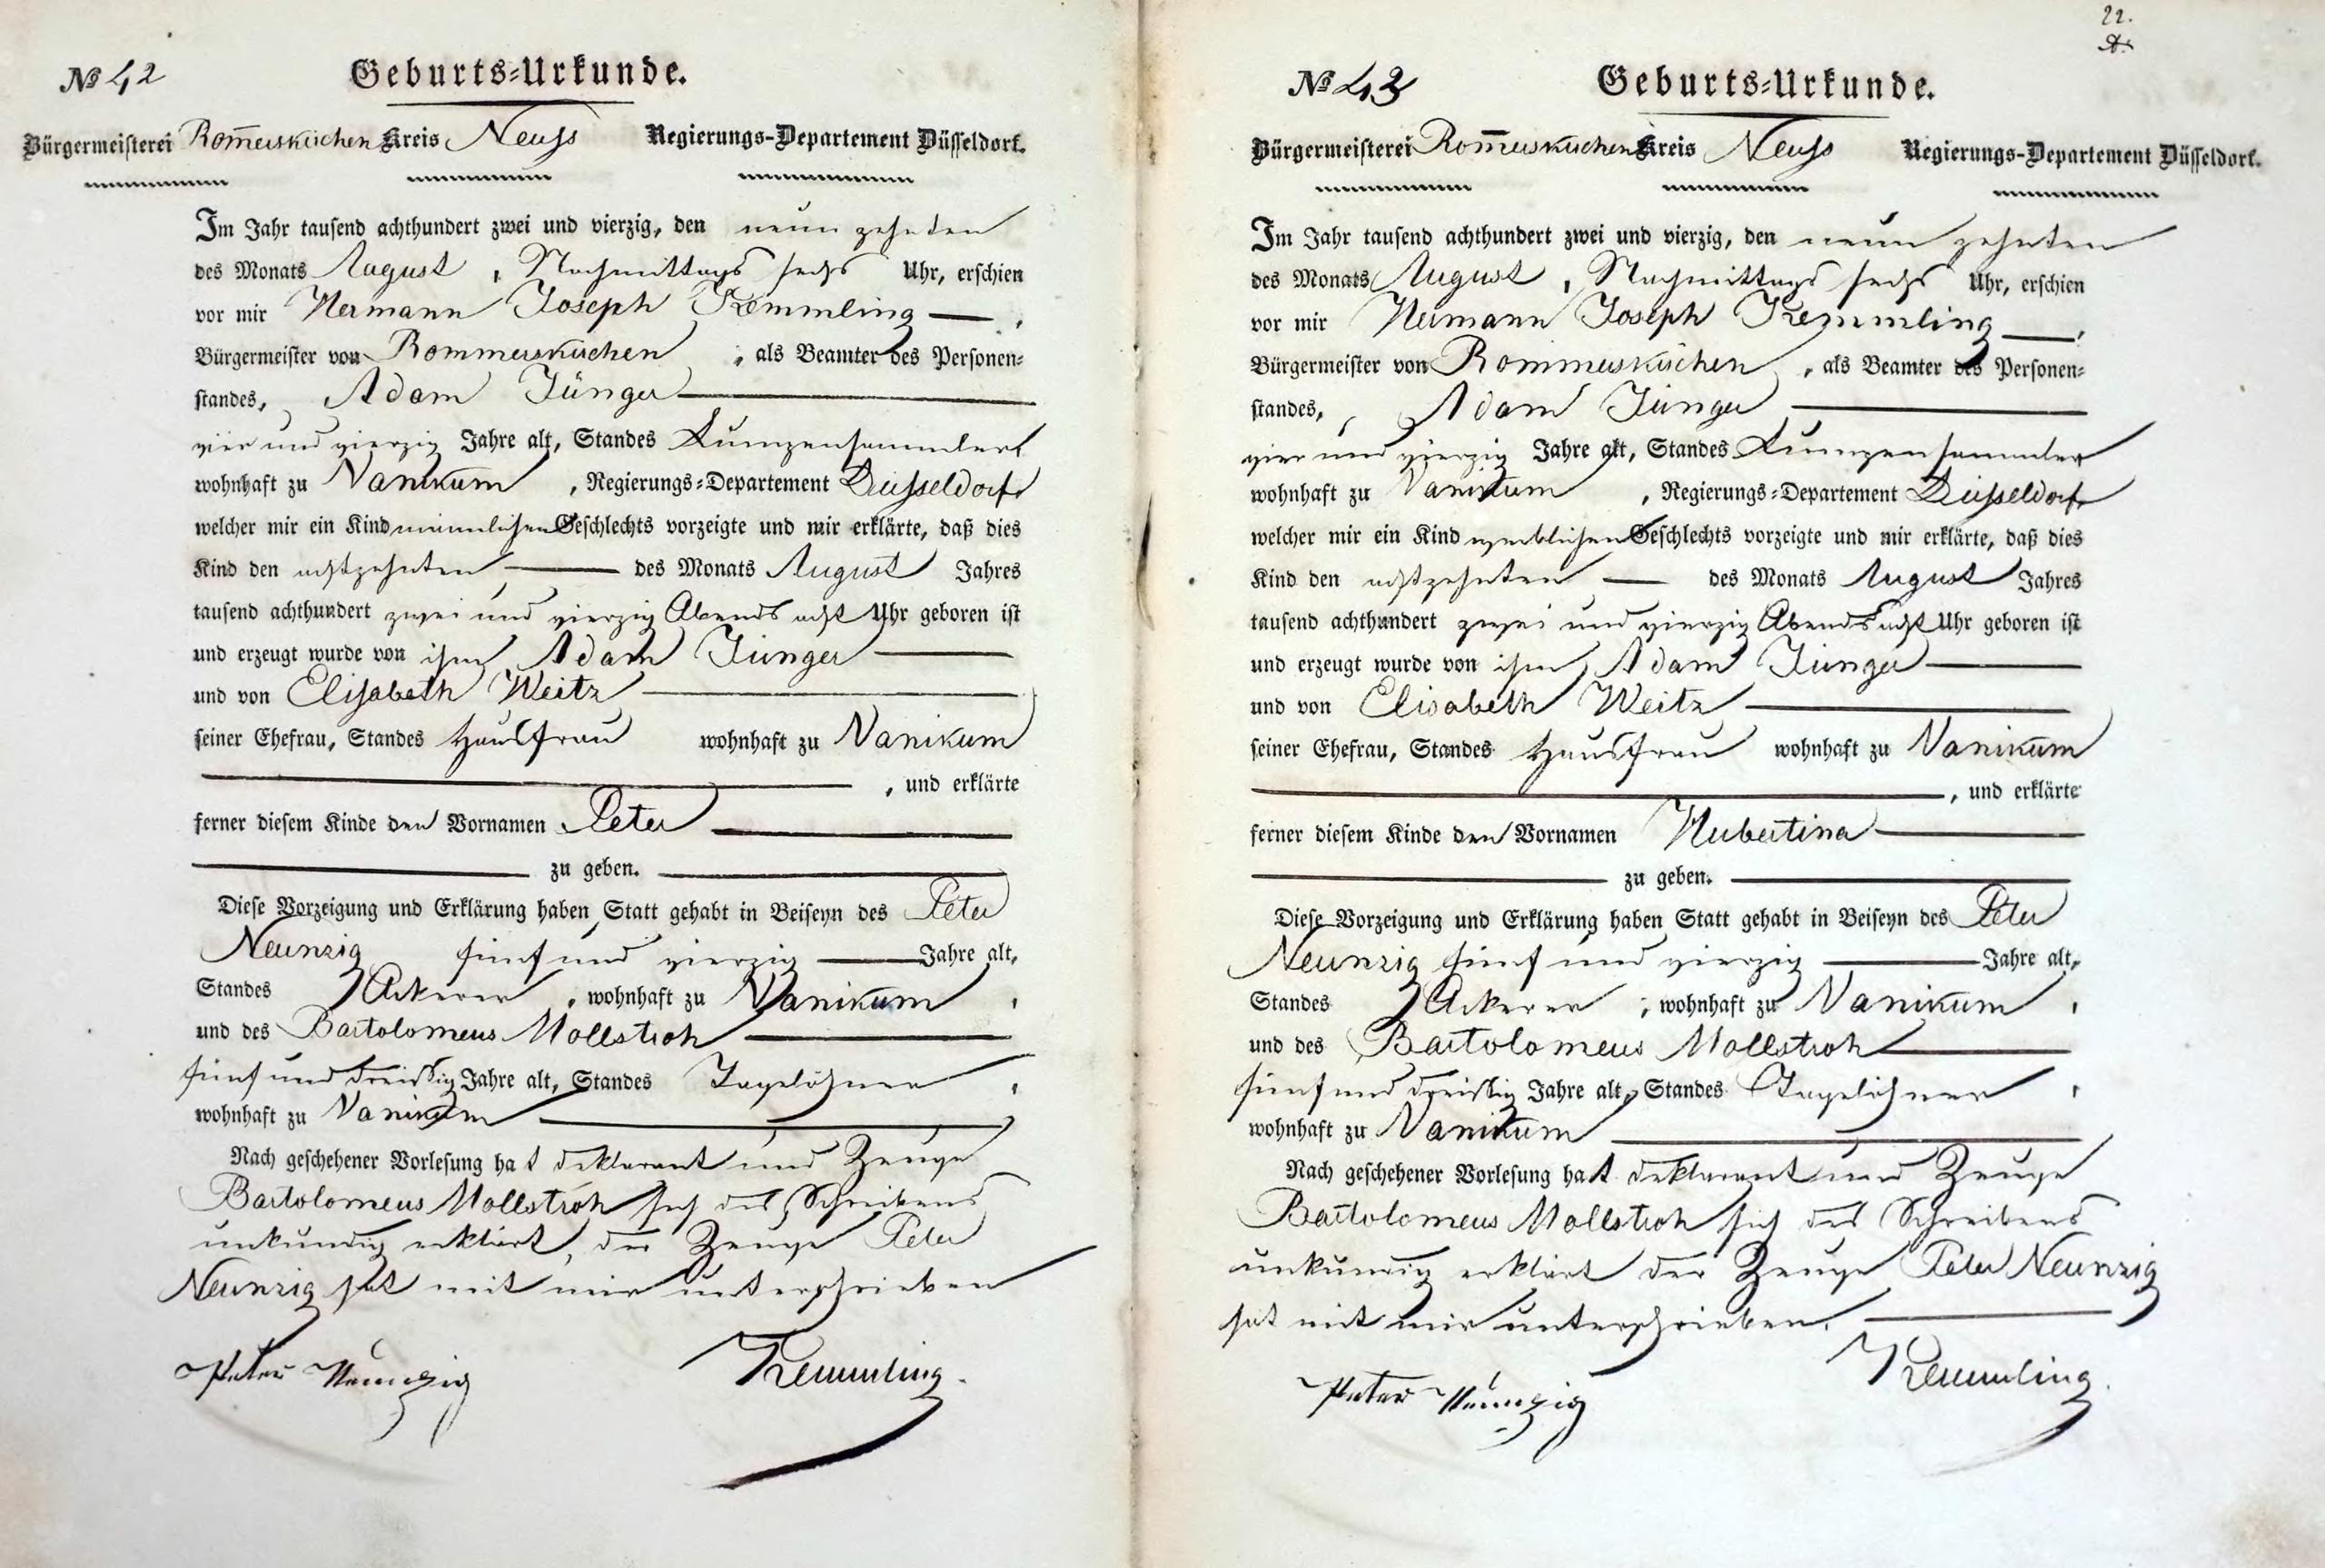 № 42
Geburts-Urkunde.
Bürgermeisterei Rom̅erskirchen Kreis Neuss Regierungs-Departement Düsseldorf.
Im Jahr tausend achthundert zwei und vierzig, den neun zehnten
des Monats August, Nachmittags sechs Uhr, erschien
vor mir Hermann Joseph Kemmling —,
Bürgermeister von Rommerskirchen, als Beamter des Personen-
standes, Adam Jünger —
vier und vierzig Jahre alt, Standes Lumpensammlers
wohnhaft zu Vanikum, Regierungs-Departement Düsseldorf,
welcher mir ein Kind männlichen Geschlechts vorzeigte und mir erklärte, daß dies
Kind den achtzehnten — des Monats August Jahres
tausend achthundert zwei und vierzig Abends acht Uhr geboren ist
und erzeugt wurde von ihm, Adam Jünger —
und von Elisabeth Weitz —
seiner Ehefrau, Standes Hausfrau wohnhaft zu Vanikum
—, und erklärte
ferner diesem Kinde den Vornamen Peter —
— zu geben. —
Diese Vorzeigung und Erklärung haben Statt gehabt in Beiseyn des Peter
Neunzig fünf und vierzig — Jahre alt,
Standes Ackerer, wohnhaft zu Vanikum,
und des Bartolomeus Mollstroh —
fünf und dreißig Jahre alt, Standes Tagelöhner,
wohnhaft zu Vanikum —
Nach geschehener Vorlesung hat deklarant und Zeuge
Bartolomeus Mollstroh sich des Schreibens
unkundig erklärt, der Zeuge Peter
Neunzig hat mit mir unterschrieben
Peter Neunzig Kemmling.
22.
№ 43
Geburts-Urkunde.
Bürgermeisterei Rom̅erskirchen Kreis Neuss Regierungs-Departement Düsseldorf.
Im Jahr tausend achthundert zwei und vierzig, den neun zehnten
des Monats August, Nachmittags sechs Uhr, erschien
vor mir Hermann Joseph Kemmling —,
Bürgermeister von Rommerskirchen, als Beamter des Personen-
standes, Adam Jünger —
vier und vierzig Jahre alt, Standes Lumpensammler
wohnhaft zu Vanikum, Regierungs-Departement Düsseldorf,
welcher mir ein Kind weiblichen Geschlechts vorzeigte und mir erklärte, daß dies
Kind den achtzehnten — des Monats August Jahres
tausend achthundert zwei und vierzig Abends acht Uhr geboren ist
und erzeugt wurde von ihm, Adam Jünger —
und von Elisabeth Weitz —
seiner Ehefrau, Standes Hausfrau wohnhaft zu Vanikum
—, und erklärte
ferner diesem Kinde den Vornamen Hubertina —
— zu geben. —
Diese Vorzeigung und Erklärung haben Statt gehabt in Beiseyn des Peter
Neunzig fünf und vierzig — Jahre alt,
Standes Ackerer, wohnhaft zu Vanikum,
und des Bartolomeus Mollstroh —
fünf und dreißig Jahre alt, Standes Tagelöhner,
wohnhaft zu Vanikum —
Nach geschehener Vorlesung hat deklarant und Zeuge
Bartolomeus Mollstroh sich des Schreibens
unkundig erklärt der Zeuge Peter Neunzig
hat mit mir unterschrieben. —
Peter Neunzig Kemmling.